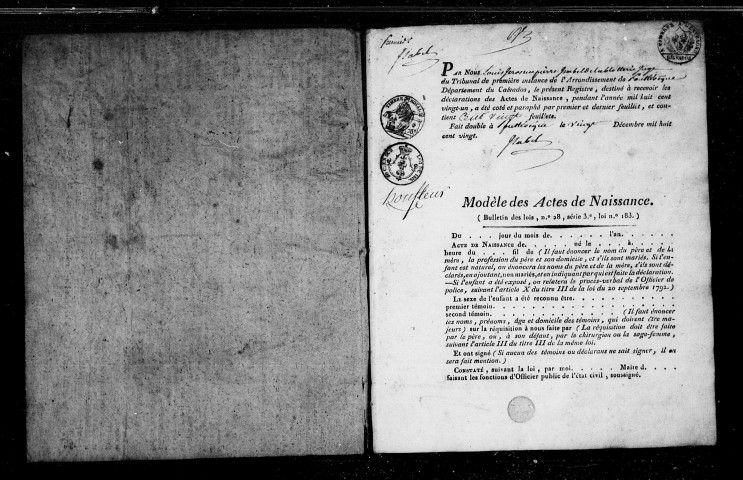 PAR NOUS
du Tribunal de première instance de l'Arrondissement de
Département du Calvados, le présent Registre, destiné à recevoir les
déclarations des Actes de Naissance, pendant l'année mil huit cent
vingt-un, a été coté et paraphé par premier et dernier feuillet, et con-
tient Cent vingt feuillets.
Fait double à le vingt Décembre mil huit
cent vingt.
Honfleur
Modèle des Actes de Naissance.
( Bulletin des lois, n.º 28, série 3.e, loi n.º 183. )
Du . . . jour du mois de. . . . . . . l'an. . . . . .
ACTE DE NAISSANCE de. . . . . . né le . . . . à. . . .
heure du . . . . fil de ( Il faut énoncer le nom du père et de la
mère, la profession du père et son domicile, et s'ils sont mariés. Si l'en-
fant est naturel, on énoncera les noms du père et de la mère, s'ils sont dé-
clarés, en ajoutant, non mariés, et en indiquant par qui est faite la déclaration.
—Si l'enfant a été exposé, on relatera le procès-verbal de l'Officier de
police, suivant l'article X du titre III de la loi du 20 septembre 1792.)
Le sexe de l'enfant a été reconnu être. . . . . . . . . .
premier témoin. . . . . . . . . . . . . . . . . . .
second témoin. . . . . . . . . . . . . . . . ( Il faut énoncer
les noms, prénoms, âge et domicile des témoins, qui doivent être ma-
jeurs ) sur la réquisition à nous faite par ( La réquisition doit être faite
par le père, ou, à son défaut, par le chirurgien ou la sage-femme,
suivant l'article III du titre III de la même loi.
Et ont signé ( Si aucun des témoins ou déclarans ne sait signer, il en
sera fait mention. )
CONSTATÉ, suivant la loi, par moi. . . . . . Maire d. . . .
faisant les fonctions d'Officier public de l'état civil, soussigné.